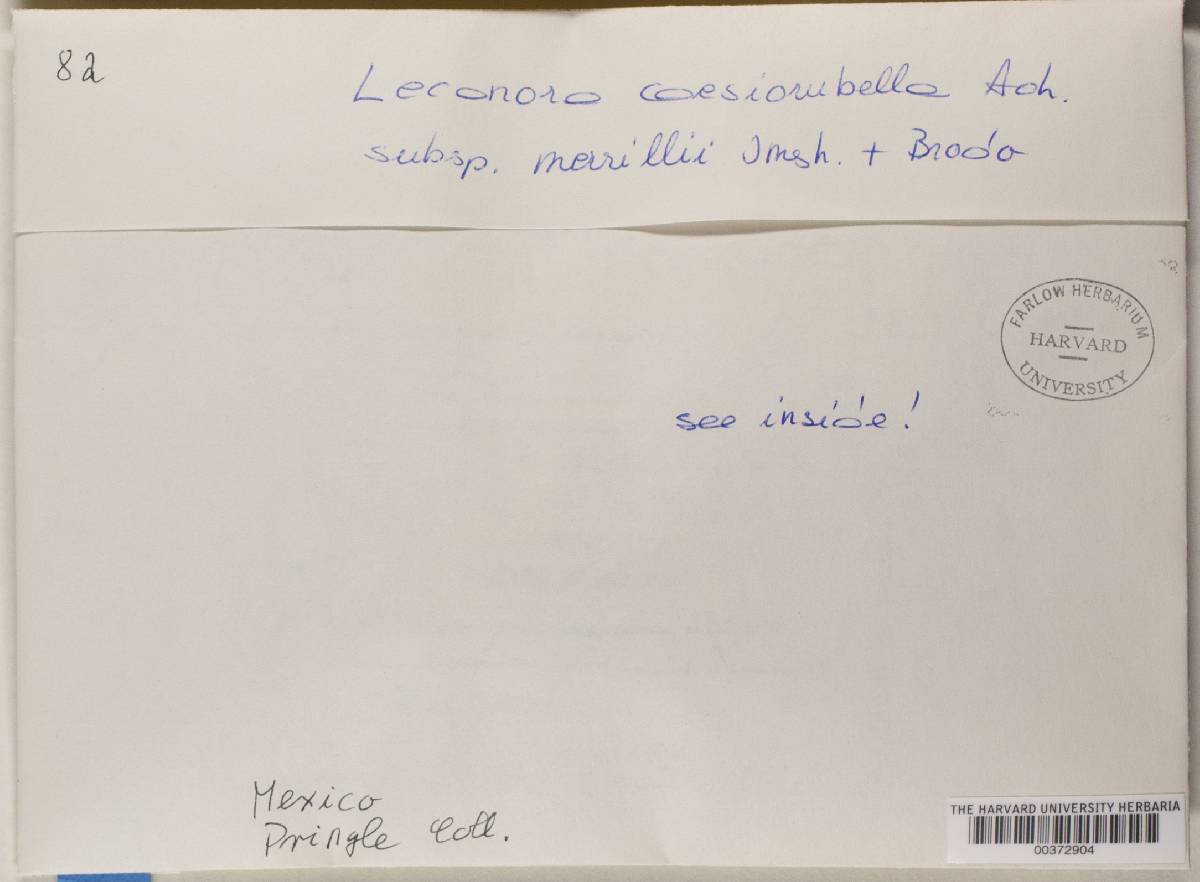 82
Leconora caesiorubella Ach.
subsp. merrillii Imsh. + Brodo
FARLOW HERBARIUM
HARVARD
UNIVERSITY
see inside!
Mexico
Pringle Coll.
THE HARVARD UNIVERSITY HERBARIA
00372904